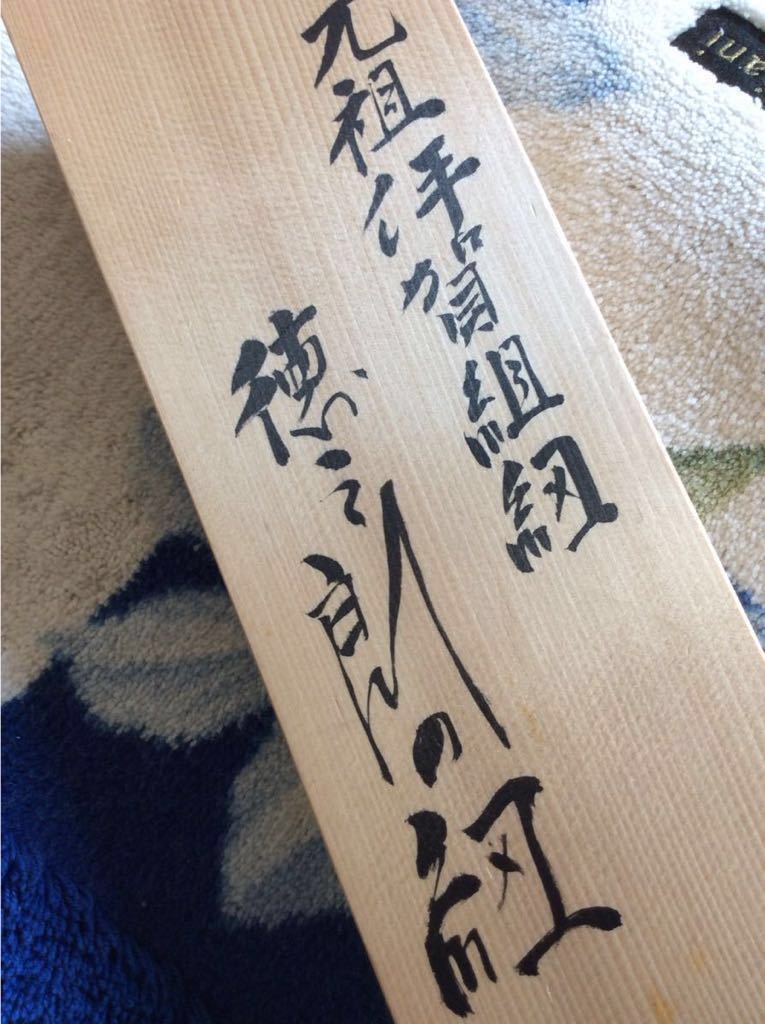 元祖伊賀組紐
徳三郎の紐
ani